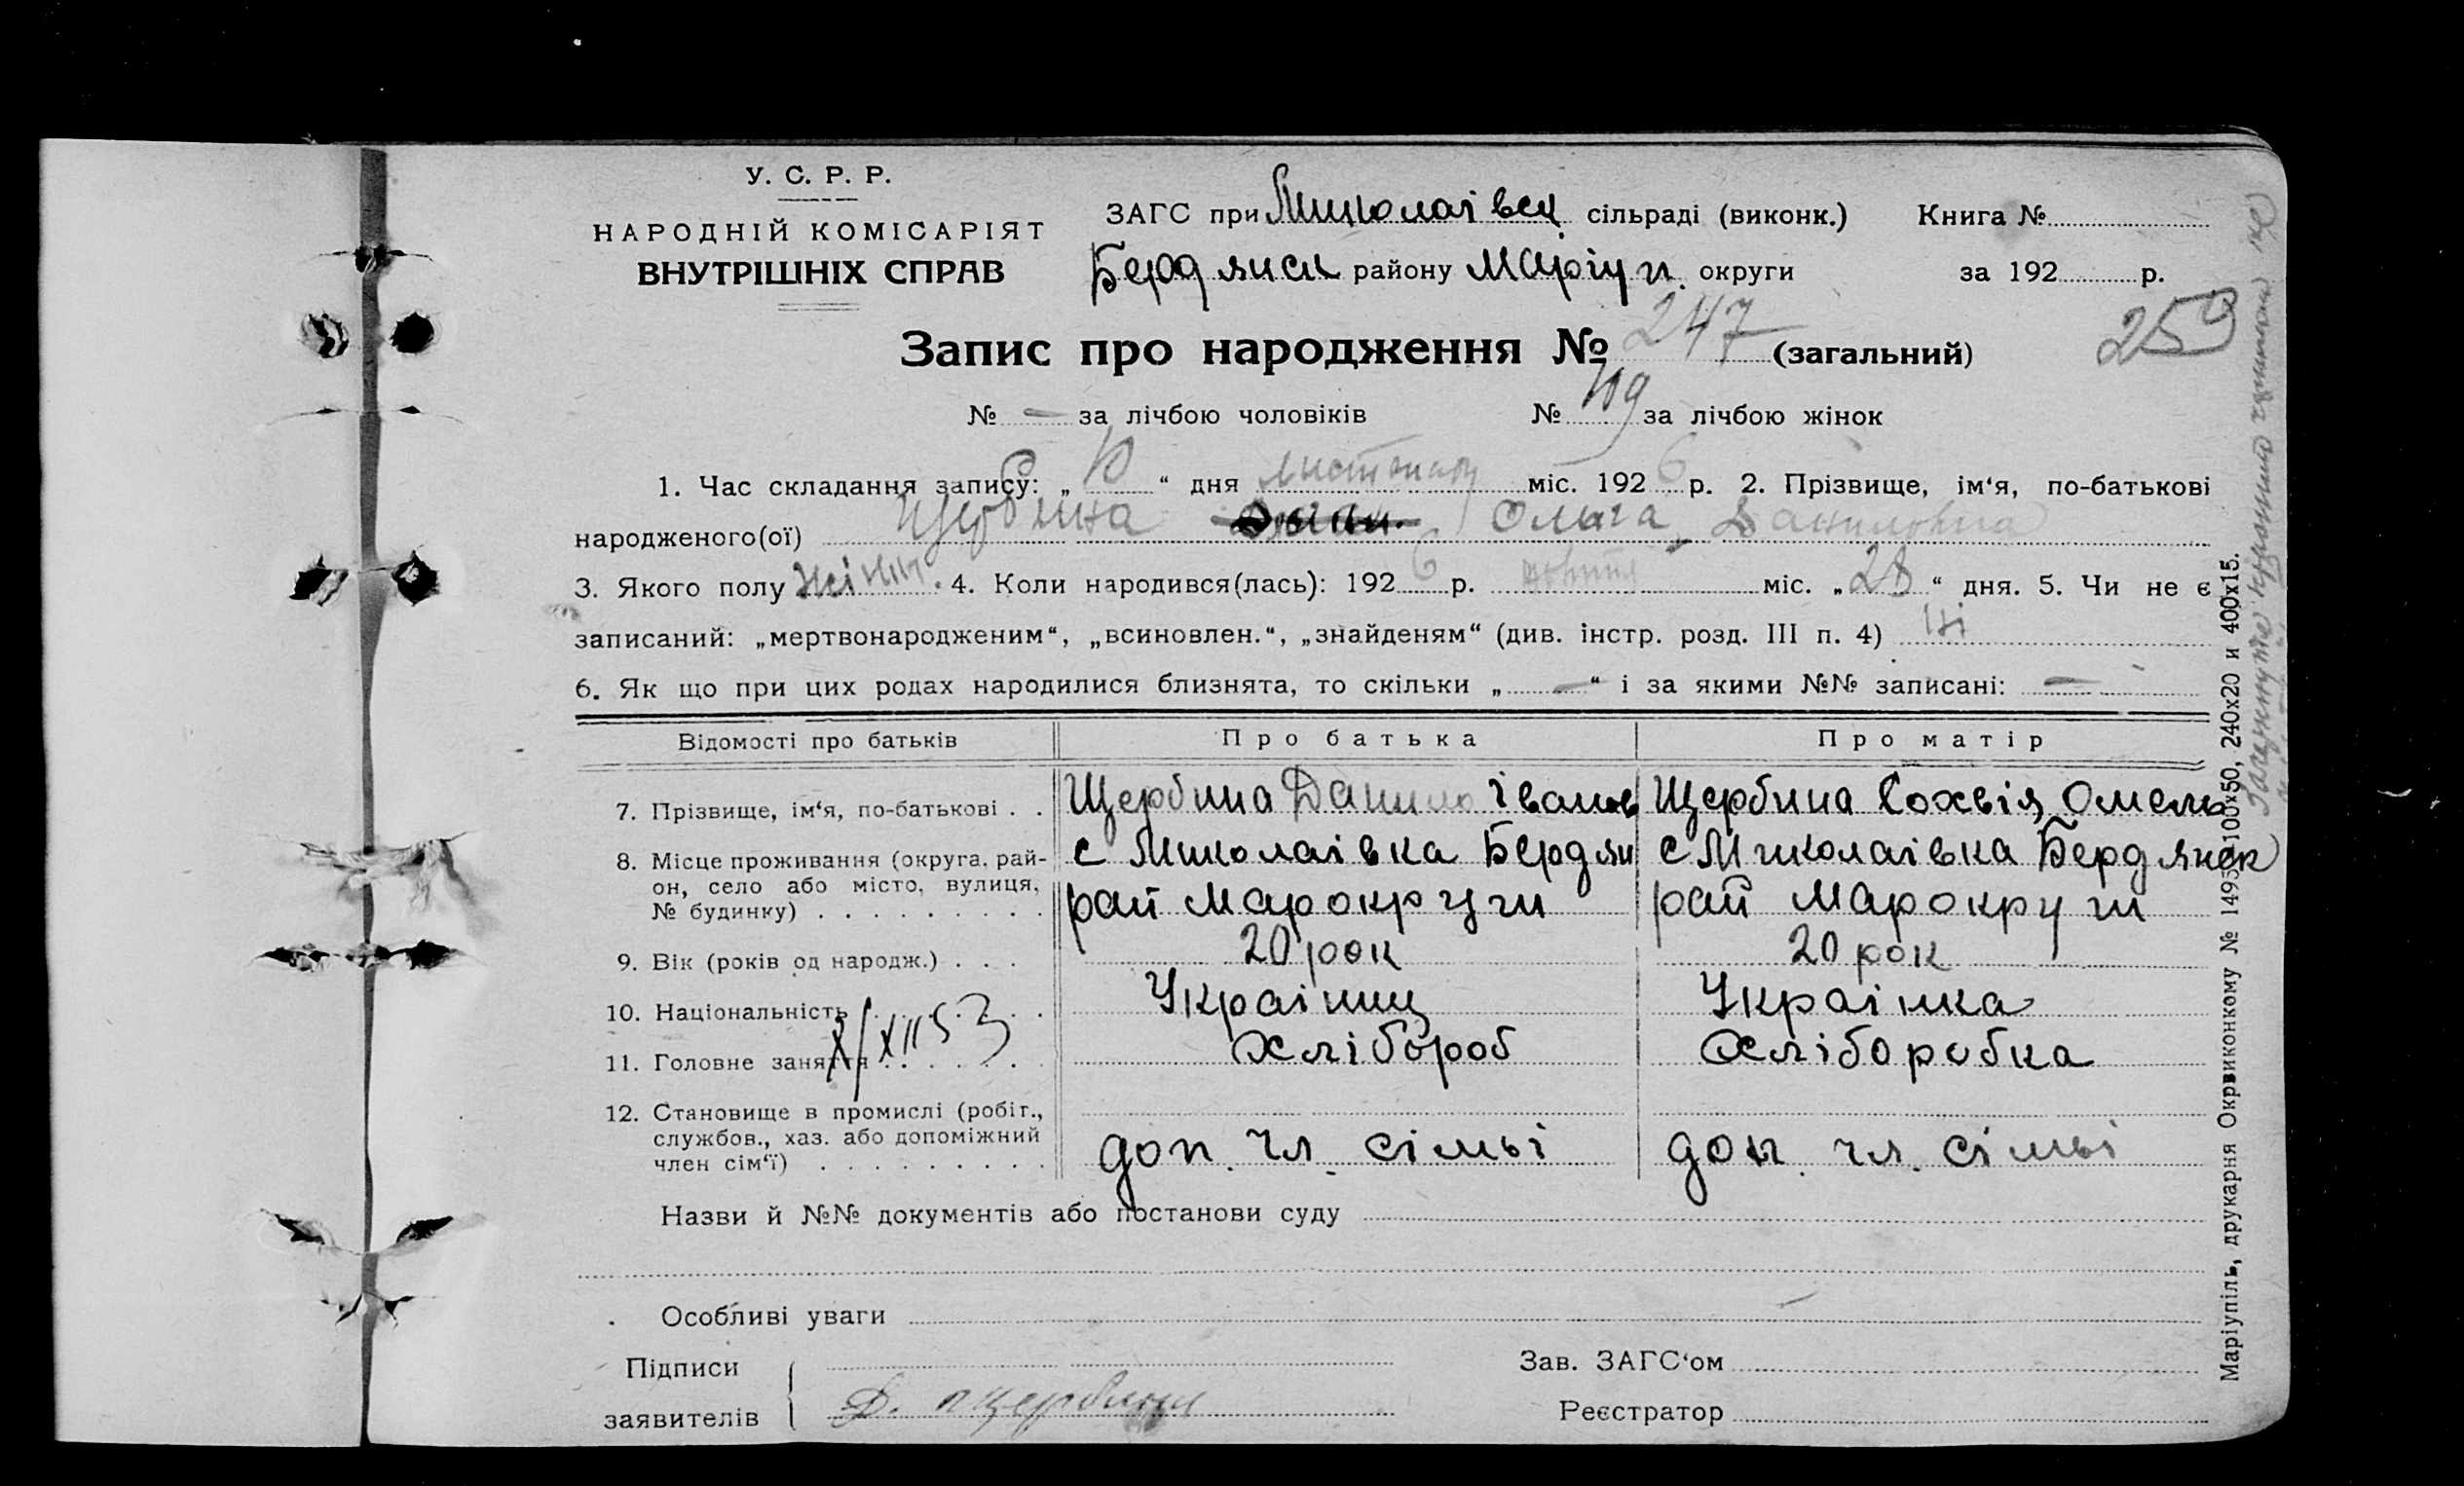 У. С. Р. Р.
НАРОДНІЙ КОМІСАРІЯТ
ВНУТРІШНІХ СПРАВ
ЗАГС при Миколаівск сільраді (виконк.) Книга №
Бердянск району Маріуп. округи за 192 р.
259
Запис про народження № 247 (загальний)
№ — за лічбою чоловіків № 109 за лічбою жінок
1. Час складання запису: „ 10 “ дня листопаду міс. 192 6 р. 2. Прізвище, ім‘я, по-батькові
народженого(ої) Щербина Ольга Даниловна
3. Якого полу жіноч. 4. Коли народився(лась): 192 6 р. жовтня міс. „ 28 “ дня. 5. Чи не є
записаний: „мертвонародженим“, „всиновлен.“, „знайденям“ (див. інстр. розд. III п. 4) Ні
6. Як що при цих родах народилися близнята, то скільки „ — “ і за якими №№ записані: —
Відомості про батьків Про батька Про матір
7. Прізвище, ім‘я, по-батькові . . Щербина Данило Іванов Щербина Сохвія Омель
8. Місце проживання (округа, рай- с Миколаівка Бердян с Миколаівка Бердянск
он, село або місто, вулиця,
№ будинку) . . . . . . . . . рай Марокруги рай Марокруги
9. Вік (років од народж.) . . . 20 рок 20 рок
10. Національність . . . . . Украінец Украінка
X/XII 53
11. Головне заняття . . . . . . Хлібороб Хліборобка
12. Становище в промислі (робіт.,
службов., хаз. або допоміжний
член сім‘ї) . . . . . . . . . доп. чл. сімьі доп. чл. сімьі
Назви й №№ документів або постанови суду
Особливі уваги
Підписи
Зав. ЗАГС‘ом
заявителів Д. Щербина
Реєстратор
Маріупіль, друкарня Окрвиконкому № 1495 100х50, 240х20 и 400х15.